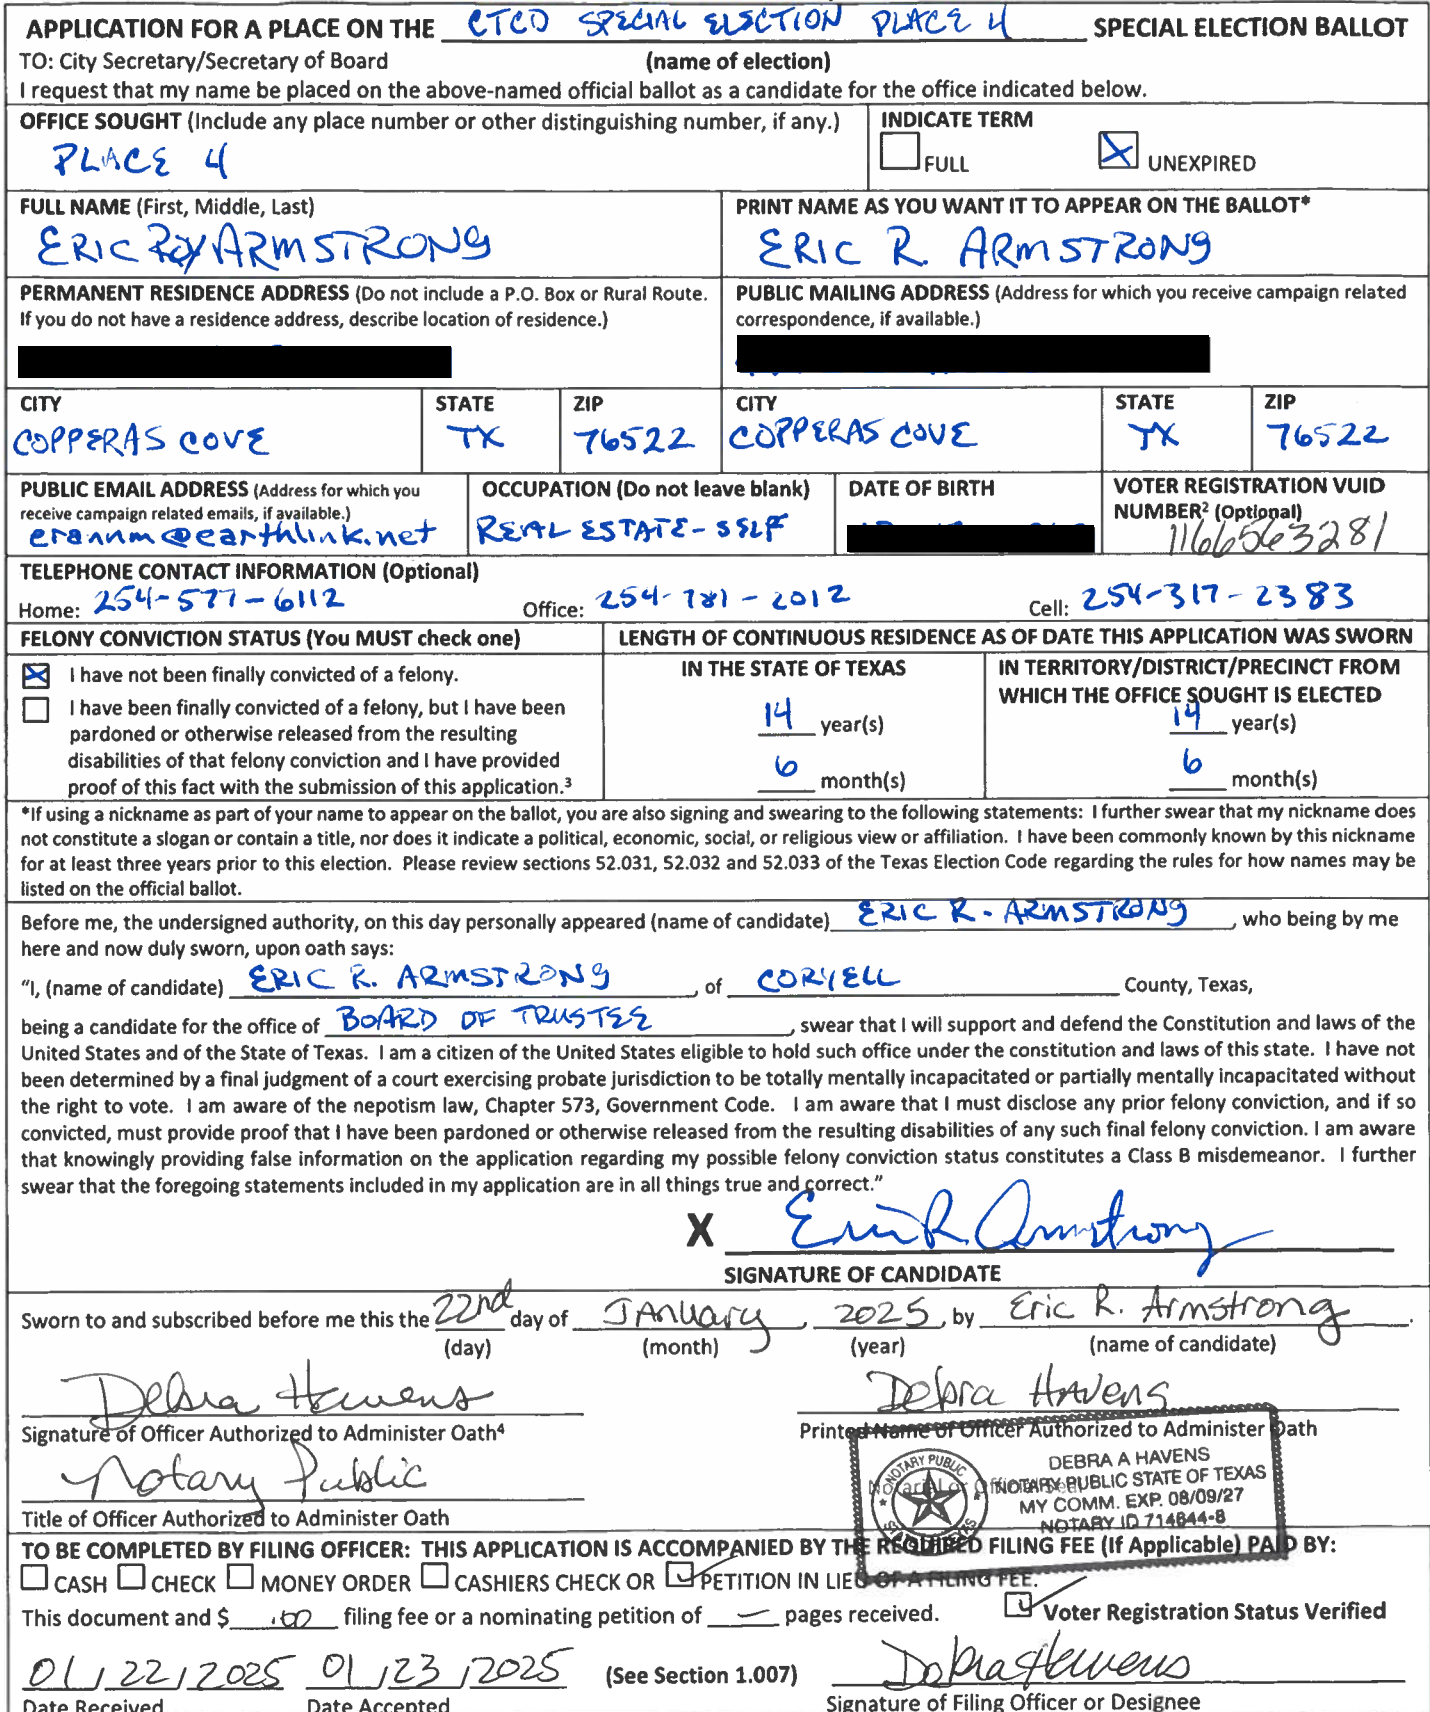 APPLICATION FOR A PLACE ON THE CTCD SPECIAL ELECTION PLACE 4 SPECIAL ELECTION BALLOT
TO: City Secretary/Secretary of Board (name of election)
I request that my name be placed on the above-named official ballot as a candidate for the office indicated below.
OFFICE SOUGHT (Include any place number or other distinguishing number, if any.) INDICATE TERM
PLACE 4 FULL UNEXPIRED
FULL NAME (First, Middle, Last) PRINT NAME AS YOU WANT IT TO APPEAR ON THE BALLOT*
ERIC ROY ARMSTRONG ERIC R. ARMSTRONG
PERMANENT RESIDENCE ADDRESS (Do not include a P.O. Box or Rural Route. PUBLIC MAILING ADDRESS (Address for which you receive campaign related
If you do not have a residence address, describe location of residence.) correspondence, if available.)
CITY STATE ZIP CITY STATE ZIP
COPPERAS COVE TX 76522 COPPERAS COVE TX 76522
PUBLIC EMAIL ADDRESS (Address for which you OCCUPATION (Do not leave blank) DATE OF BIRTH VOTER REGISTRATION VUID
receive campaign related emails, if available.) NUMBER² (Optional)
erannm@earthlink.net REAL ESTATE-SELF 1166563281
TELEPHONE CONTACT INFORMATION (Optional)
Home: 254-577-6112 Office: 254-781-2012 Cell: 254-317-2383
FELONY CONVICTION STATUS (You MUST check one) LENGTH OF CONTINUOUS RESIDENCE AS OF DATE THIS APPLICATION WAS SWORN
I have not been finally convicted of a felony. IN THE STATE OF TEXAS IN TERRITORY/DISTRICT/PRECINCT FROM
WHICH THE OFFICE SOUGHT IS ELECTED
I have been finally convicted of a felony, but I have been 14 year(s) 14 year(s)
pardoned or otherwise released from the resulting
disabilities of that felony conviction and I have provided
proof of this fact with the submission of this application.³ 6 month(s) 6 month(s)
*If using a nickname as part of your name to appear on the ballot, you are also signing and swearing to the following statements: I further swear that my nickname does
not constitute a slogan or contain a title, nor does it indicate a political, economic, social, or religious view or affiliation. I have been commonly known by this nickname
for at least three years prior to this election. Please review sections 52.031, 52.032 and 52.033 of the Texas Election Code regarding the rules for how names may be
listed on the official ballot.
Before me, the undersigned authority, on this day personally appeared (name of candidate) ERIC R. ARMSTRONG, who being by me
here and now duly sworn, upon oath says:
"I, (name of candidate) ERIC R. ARMSTRONG, of CORYELL County, Texas,
being a candidate for the office of BOARD OF TRUSTEE, swear that I will support and defend the Constitution and laws of the
United States and of the State of Texas. I am a citizen of the United States eligible to hold such office under the constitution and laws of this state. I have not
been determined by a final judgment of a court exercising probate jurisdiction to be totally mentally incapacitated or partially mentally incapacitated without
the right to vote. I am aware of the nepotism law, Chapter 573, Government Code. I am aware that I must disclose any prior felony conviction, and if so
convicted, must provide proof that I have been pardoned or otherwise released from the resulting disabilities of any such final felony conviction. I am aware
that knowingly providing false information on the application regarding my possible felony conviction status constitutes a Class B misdemeanor. I further
swear that the foregoing statements included in my application are in all things true and correct."
X Eric R Armstrong
SIGNATURE OF CANDIDATE
Sworn to and subscribed before me this the 22nd day of January, 2025, by Eric R. Armstrong.
(day) (month) (year) (name of candidate)
Debra Havens Debra Havens
Signature of Officer Authorized to Administer Oath⁴ Printed Name of Officer Authorized to Administer Oath
Notary Public
Title of Officer Authorized to Administer Oath
NOTARY PUBLIC
DEBRA A HAVENS
NOTARY PUBLIC STATE OF TEXAS
MY COMM. EXP. 08/09/27
NOTARY ID 714844-8
TO BE COMPLETED BY FILING OFFICER: THIS APPLICATION IS ACCOMPANIED BY THE REQUIRED FILING FEE (If Applicable) PAID BY:
CASH CHECK MONEY ORDER CASHIERS CHECK OR PETITION IN LIEU OF A FILING FEE.
This document and $ .00 filing fee or a nominating petition of — pages received. Voter Registration Status Verified
01/22/2025 01/23/2025 (See Section 1.007) Debra Havens
Date Received Date Accepted Signature of Filing Officer or Designee